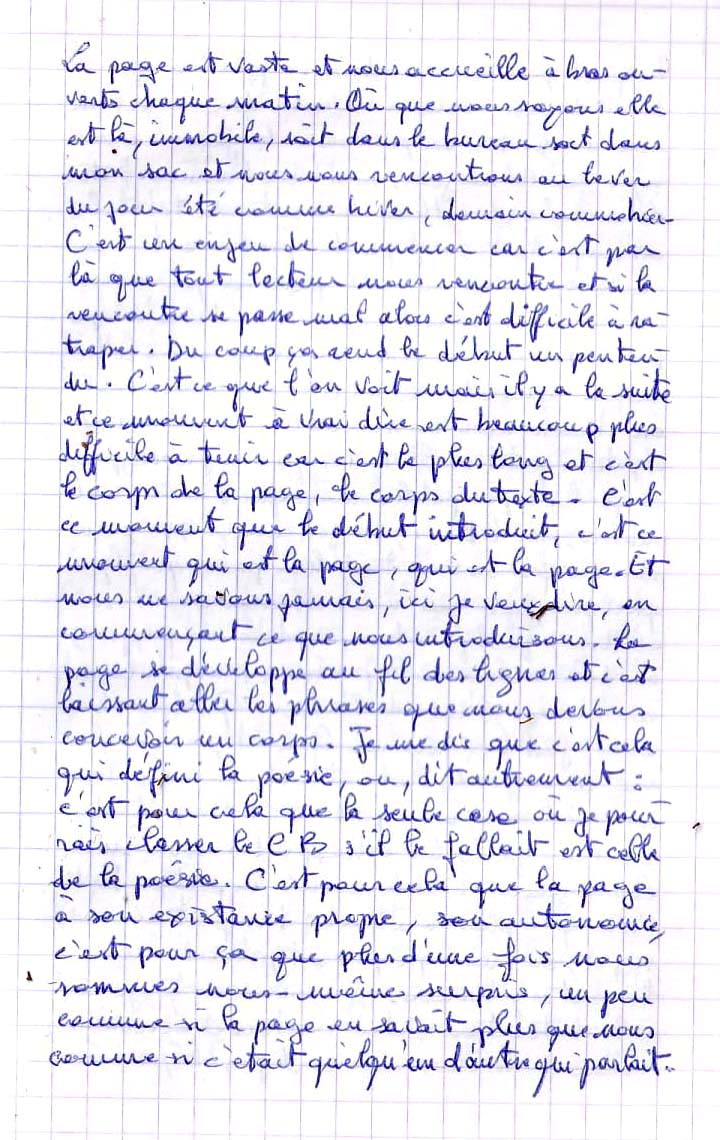 La page est vaste et nous accueille à bras ou-
verts chaque matin. Où que nous soyons elle
est là, immobile, soit dans le bureau soit dans
mon sac et nous nous rencontrons au lever
du jour été comme hiver, demain comme hier.
C'est un enjeu de commencer car c'est par
là que tout lecteur nous rencontre et si la
rencontre se passe mal alors c'est difficile à ra-
traper. Du coup ça rend le début un peu ten-
du. C'est ce que l'on voit mais il y a la suite
et ce moment à vrai dire est beaucoup plus
difficile à tenir car c'est le plus long et c'est
le corps de la page, le corps du texte. C'est
ce moment que le début introduit, c'est ce
moment qui est la page, qui est la page. Et
nous ne savons jamais, ici je veux dire, en
commençant ce que nous introduisons. La
page se développe au fil des lignes et c'est
laissant aller les phrases que nous devons
concevoir un corps. Je me dis que c'est cela
qui défini la poésie, ou, dit autrement :
c'est pour cela que la seule case où je pour-
rais classer le CB s'il le fallait est celle
de la poésie. C'est pour cela que la page
à son existance propre, son autonomie,
c'est pour ça que plus d'une fois nous
sommes nous-même surpris, un peu
comme si la page en savait plus que nous
comme si c'était quelqu'un d'autre qui parlait..